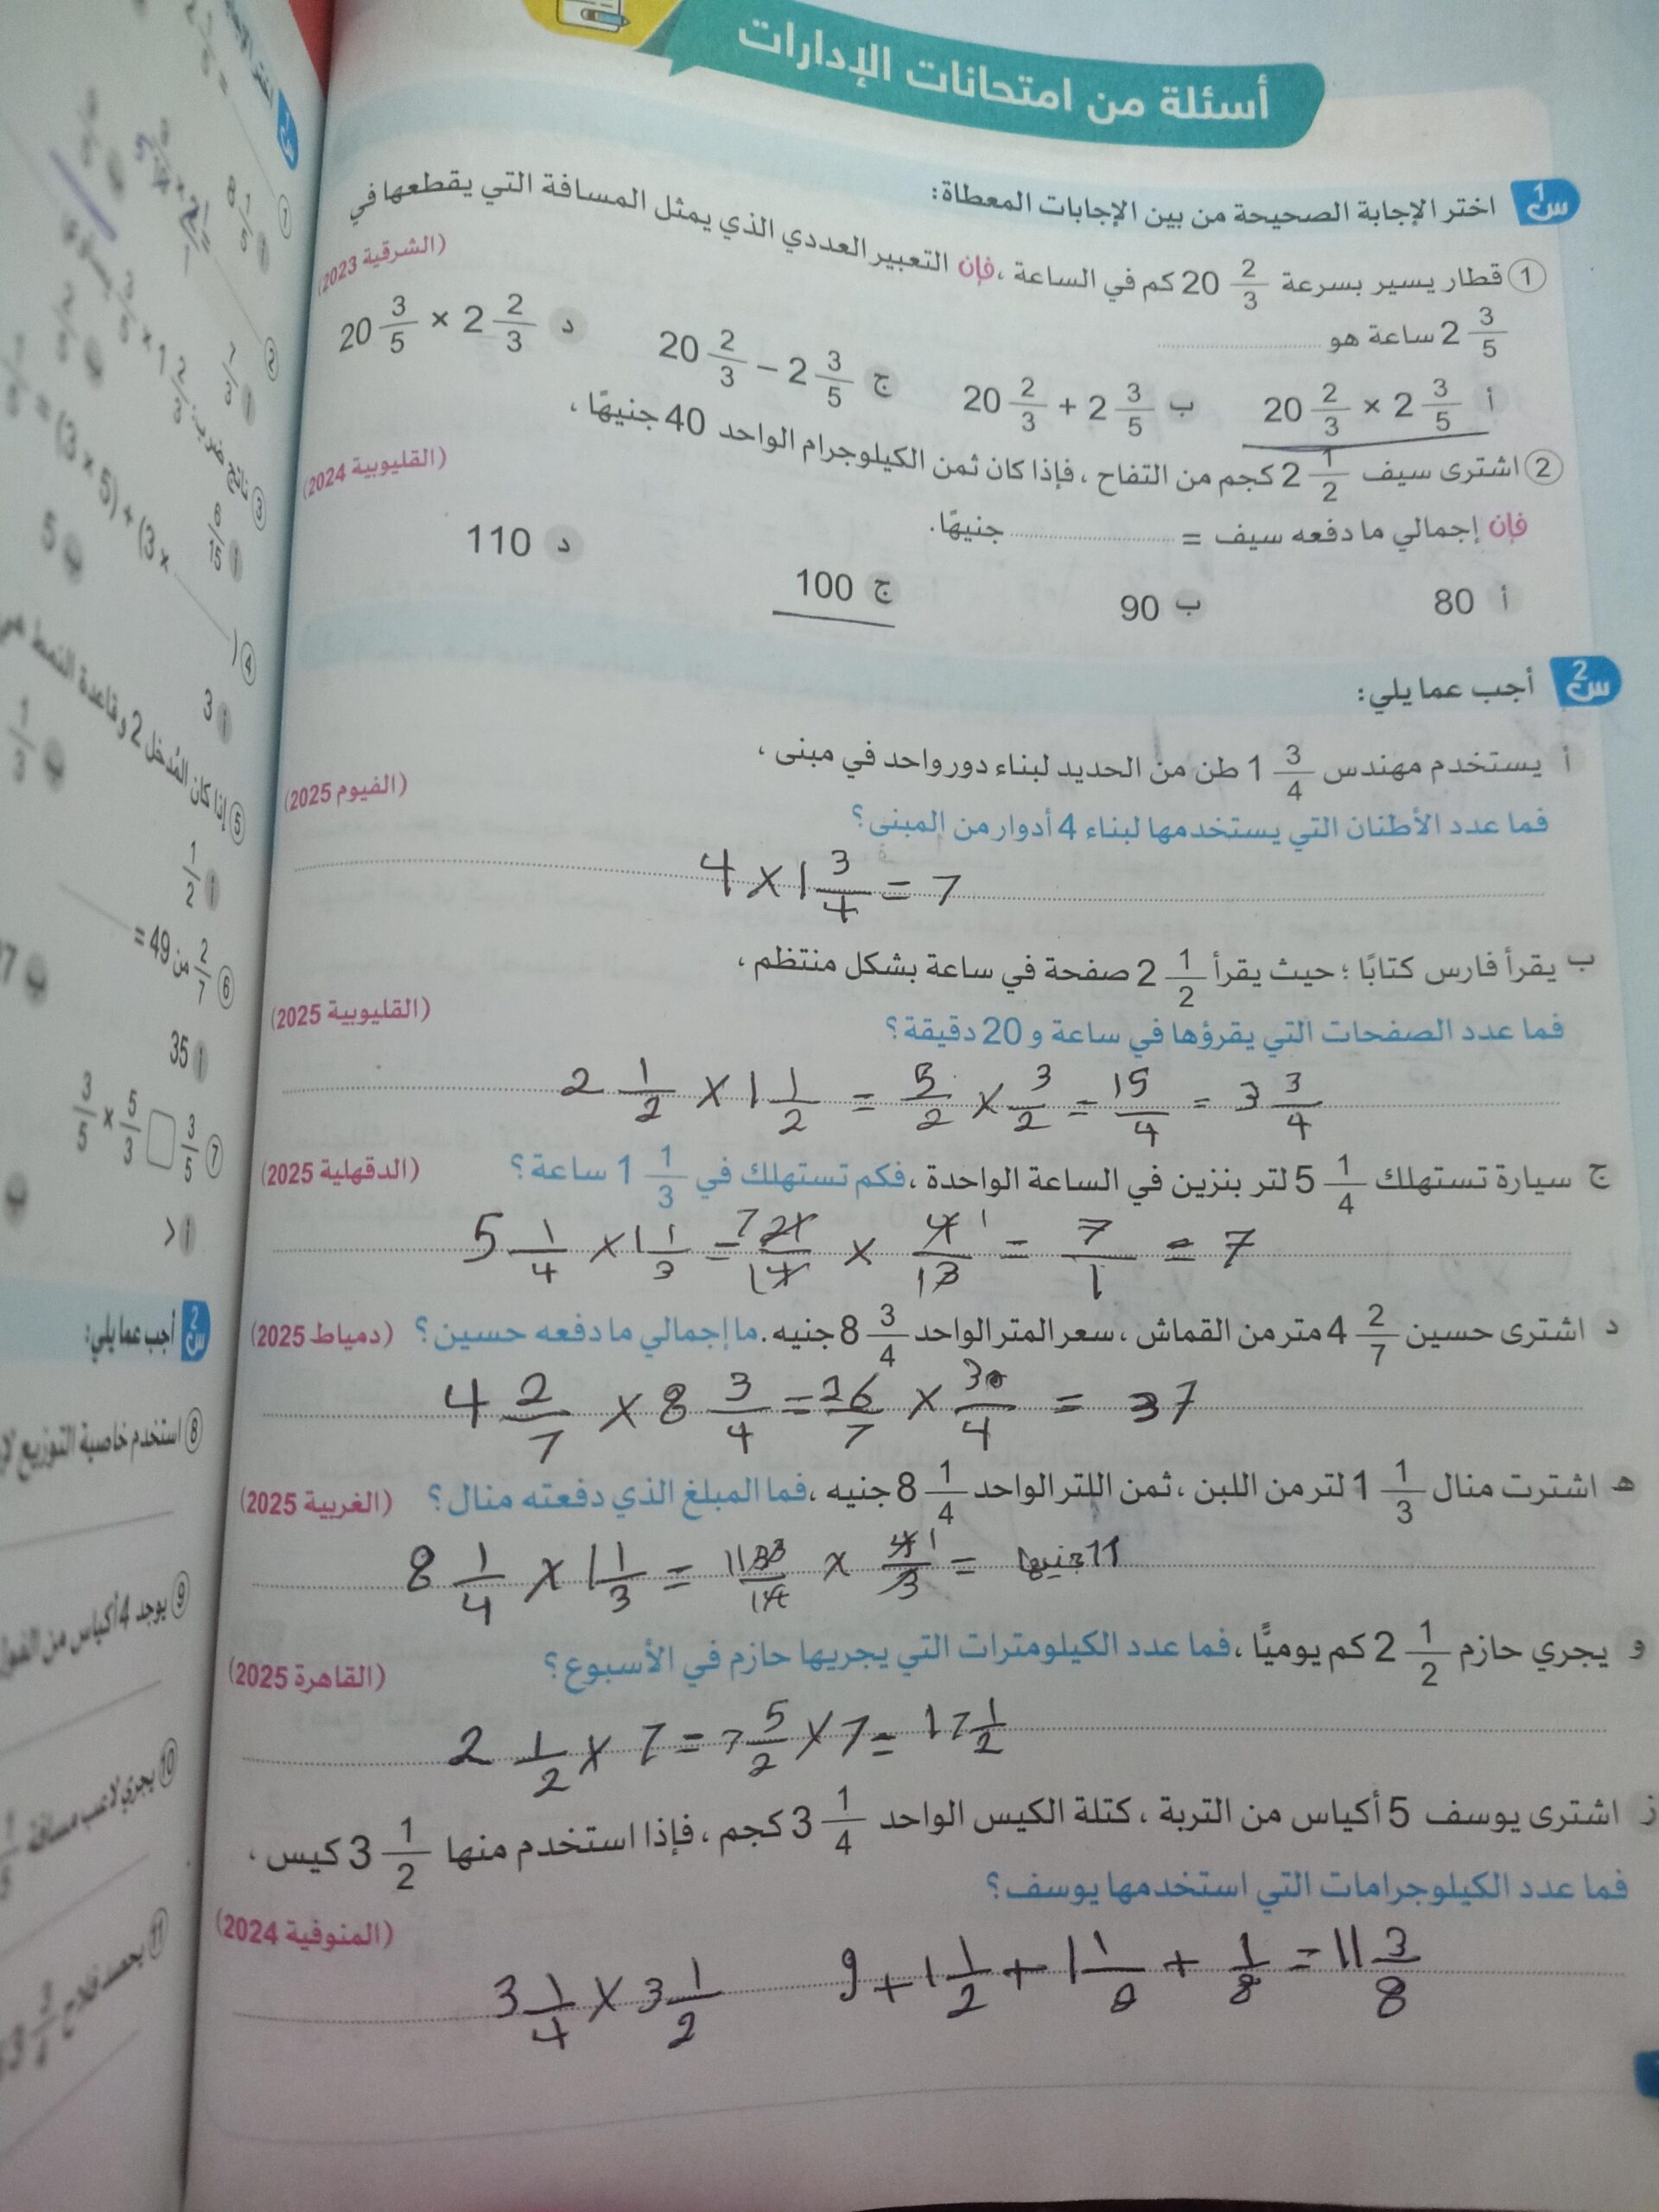 أسئلة من امتحانات الإدارات
س1 اختر الإجابة الصحيحة من بين الإجابات المعطاة:
① قطار يسير بسرعة 20 2/3 كم في الساعة ، فإن التعبير العددي الذي يمثل المسافة التي يقطعها في
2 3/5 ساعة هو ........ (الشرقية 2023)
أ 20 2/3 × 2 3/5 ب 20 2/3 + 2 3/5 ج 20 2/3 − 2 3/5 د 20 3/5 × 2 2/3
② اشترى سيف 2 1/2 كجم من التفاح ، فإذا كان ثمن الكيلوجرام الواحد 40 جنيهًا ،
فإن إجمالي ما دفعه سيف = ........ جنيهًا. (القليوبية 2024)
أ 80 ب 90 ج 100 د 110
س2 أجب عما يلي:
أ يستخدم مهندس 1 3/4 طن من الحديد لبناء دور واحد في مبنى ،
فما عدد الأطنان التي يستخدمها لبناء 4 أدوار من المبنى؟ (الفيوم 2025)
4 × 1 3/4 = 7
ب يقرأ فارس كتابًا ؛ حيث يقرأ 2 1/2 صفحة في ساعة بشكل منتظم ،
فما عدد الصفحات التي يقرؤها في ساعة و 20 دقيقة؟ (القليوبية 2025)
2 1/2 × 1 1/2 = 5/2 × 3/2 = 15/4 = 3 3/4
ج سيارة تستهلك 5 1/4 لتر بنزين في الساعة الواحدة ، فكم تستهلك في 1 1/3 ساعة؟ (الدقهلية 2025)
5 1/4 × 1 1/3 = 7 21/1 4 × 4 1/1 3 = 7/1 = 7
د اشترى حسين 4 2/7 متر من القماش ، سعر المتر الواحد 8 3/4 جنيه . ما إجمالي ما دفعه حسين؟ (دمياط 2025)
4 2/7 × 8 3/4 = 26/7 × 30/4 = 37
هـ اشترت منال 1 1/3 لتر من اللبن ، ثمن اللتر الواحد 8 1/4 جنيه ، فما المبلغ الذي دفعته منال؟ (الغربية 2025)
8 1/4 × 1 1/3 = 11 33/1 4 × 4 1/3 = 11 جنيها
و يجري حازم 2 1/2 كم يوميًّا ، فما عدد الكيلومترات التي يجريها حازم في الأسبوع؟ (القاهرة 2025)
2 1/2 × 7 = 5/2 × 7 = 17 1/2
ز اشترى يوسف 5 أكياس من التربة ، كتلة الكيس الواحد 3 1/4 كجم ، فإذا استخدم منها 3 1/2 كيس ،
فما عدد الكيلوجرامات التي استخدمها يوسف؟ (المنوفية 2024)
3 1/4 × 3 1/2 9 + 1 1/2 + 1/8 = 11 3/8
① أ 8 1/5
③ ناتج ضرب:
أ 6/15
= (3 × 5) + (3 ×
أ 3
⑤ إذا كان المُدخل 2 وقاعدة النمط هي
أ 1/2
⑥ 2/7 من 49 =
أ 35
⑦ 3/5 □ 5/3 × 3/5
أ >
س2 أجب عما يلي:
⑧ استخدم خاصية التوزيع
⑨ يوجد 4 أكياس من
⑩ يجري لاعب مسافة
⑪ يحصد فلاح